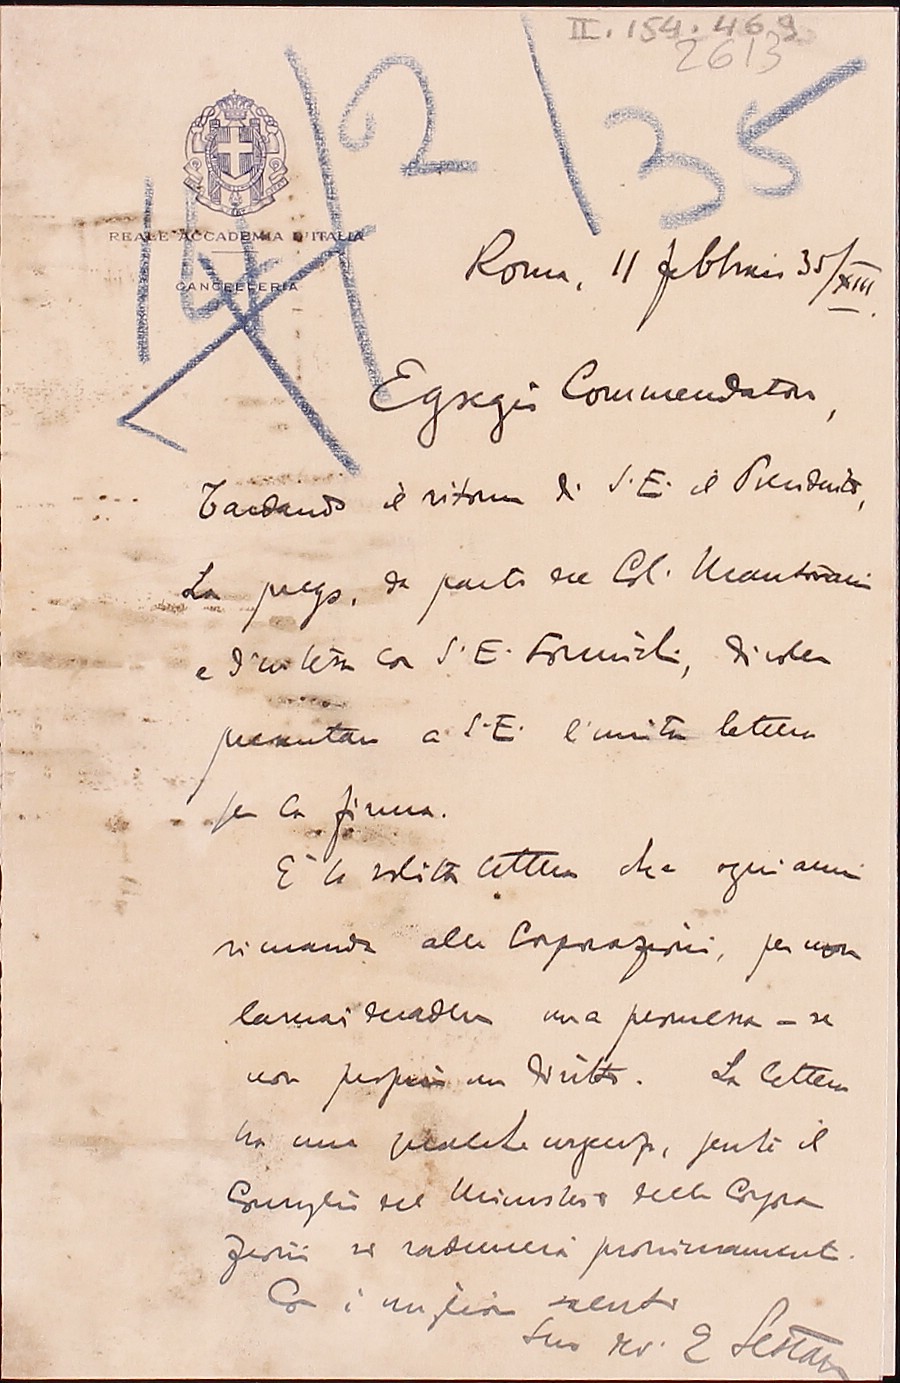 II. 154. 469
2613
14/2/35
REALE ACCADEMIA D'ITALIA
CANCELLERIA
Roma, 11 febbraio 35/XIII.
Egregio Commendatore,
Tardando il ritorno di S.E. il Presidente,
La prego, da parte del Col. Mantovani
e d'intesa con S.E. Formichi, di voler
presentare a S.E. l'unita lettera
per la firma.
È la solita lettera che ogni anno
si manda alle Corporazioni, per non
lasciar scadere una promessa - se
non proprio un diritto. La lettera
ha una qualche urgenza, perché il
Consiglio del Ministero delle Corpora
zioni si radunerà prossimamente.
Con i migliori saluti
Suo dev. E Sestan